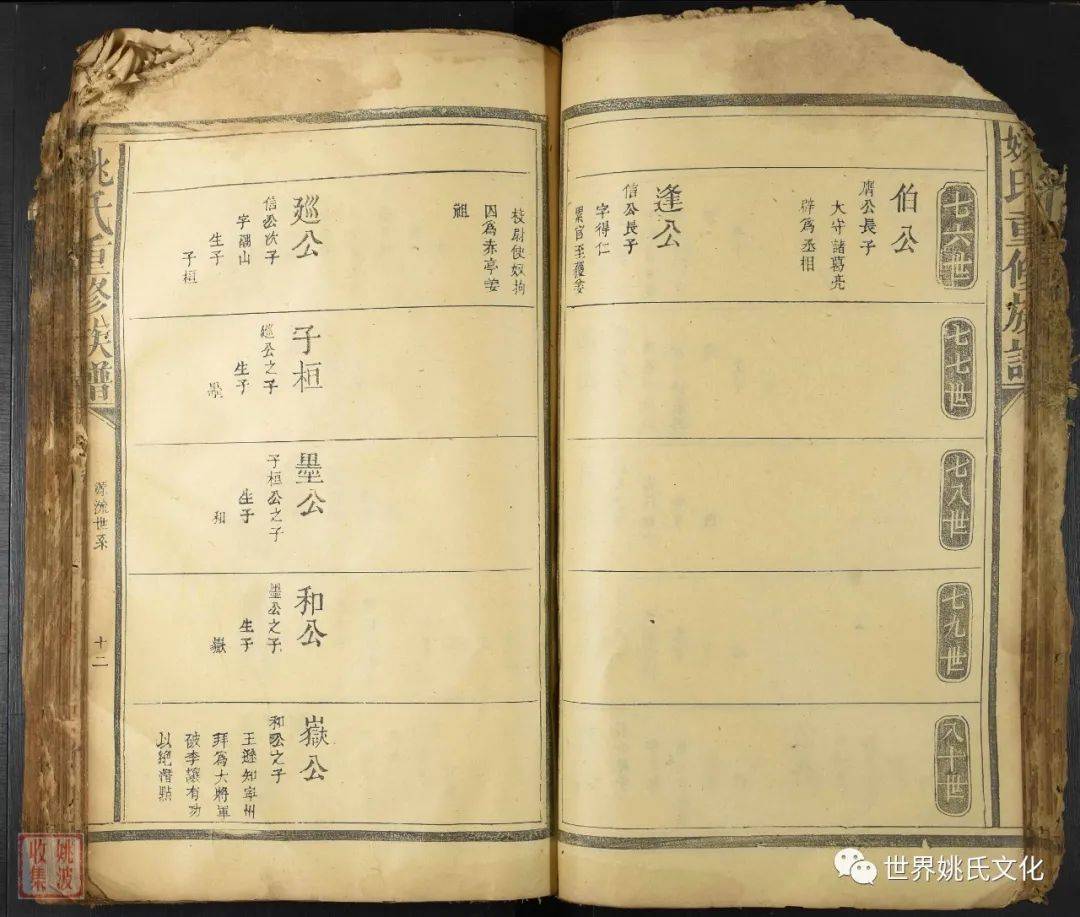 姚氏重修族譜
七六世
伯公
膺公長子
大守諸葛亮
辟為丞相
逢公
信公長子
字得仁
累官至護羌
校尉使奴拘
因為赤亭姜
祖
廵公
信公次子
字禹山
生子
子桓
七七世
子桓
廵公之子
生子
墨
七八世
墨公
子桓公之子
生子
和
七九世
和公
墨公之子
生子
嶽
八十世
嶽公
和公之子
王遜知寧州
拜為大將軍
破李驤有功
以絕潛點
姚氏重修族譜
源流世系
十二
姚波
收集
世界姚氏文化